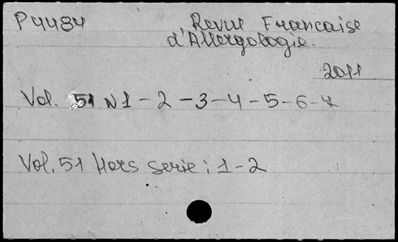 P4484 Revue Francaise
d'Allergologie.
2011
Vol. 51 N1-2-3-4-5-6-7
Vol. 51 Hors serie: 1-2